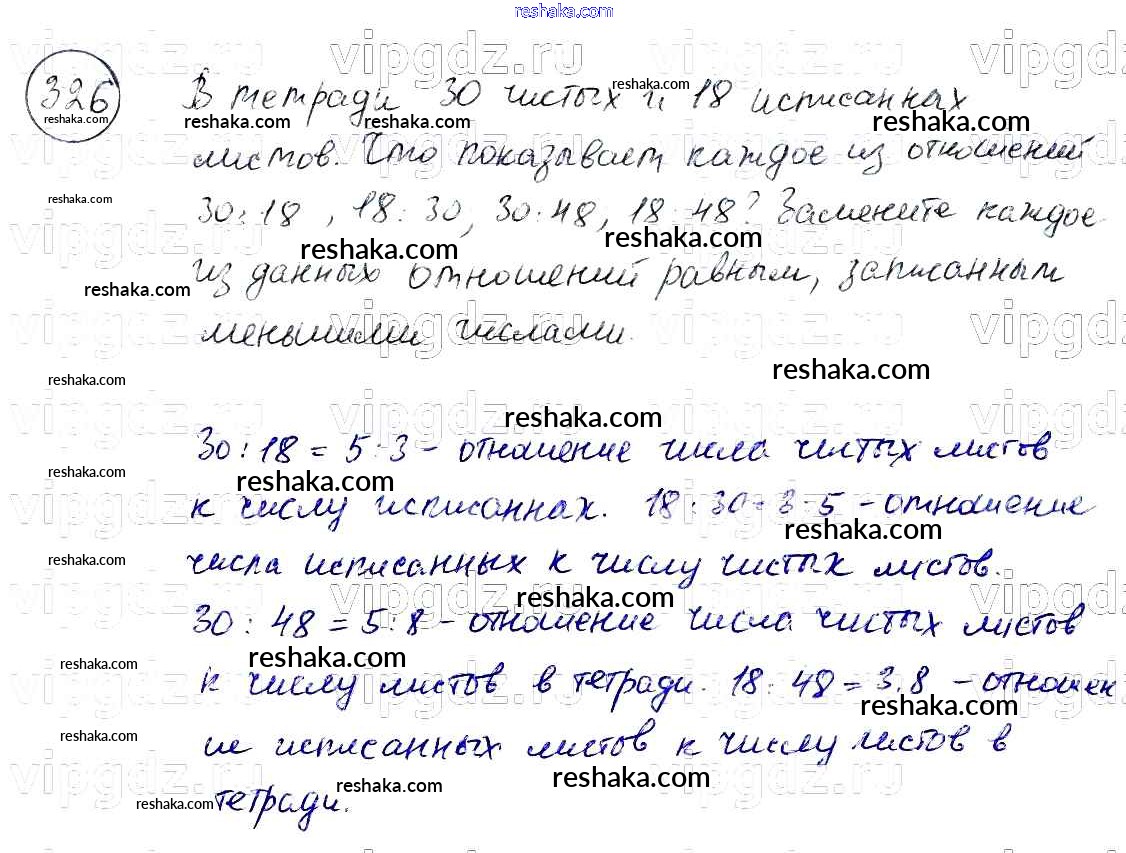 reshaka.com
326
В тетради 30 чистых и 18 исписанных
листов. Что показывает каждое из отношений
30:18, 18:30, 30:48, 18:48? Замените каждое
из данных отношений равным, записанным
меньшими числами.
30:18 = 5:3 - отношение числа чистых листов
к числу исписанных. 18:30=3:5 - отношение
числа исписанных к числу чистых листов.
30:48 = 5:8 - отношение числа чистых листов
к числу листов в тетради. 18:48 = 3:8 - отношен
ие исписанных листов к числу листов в
тетради.